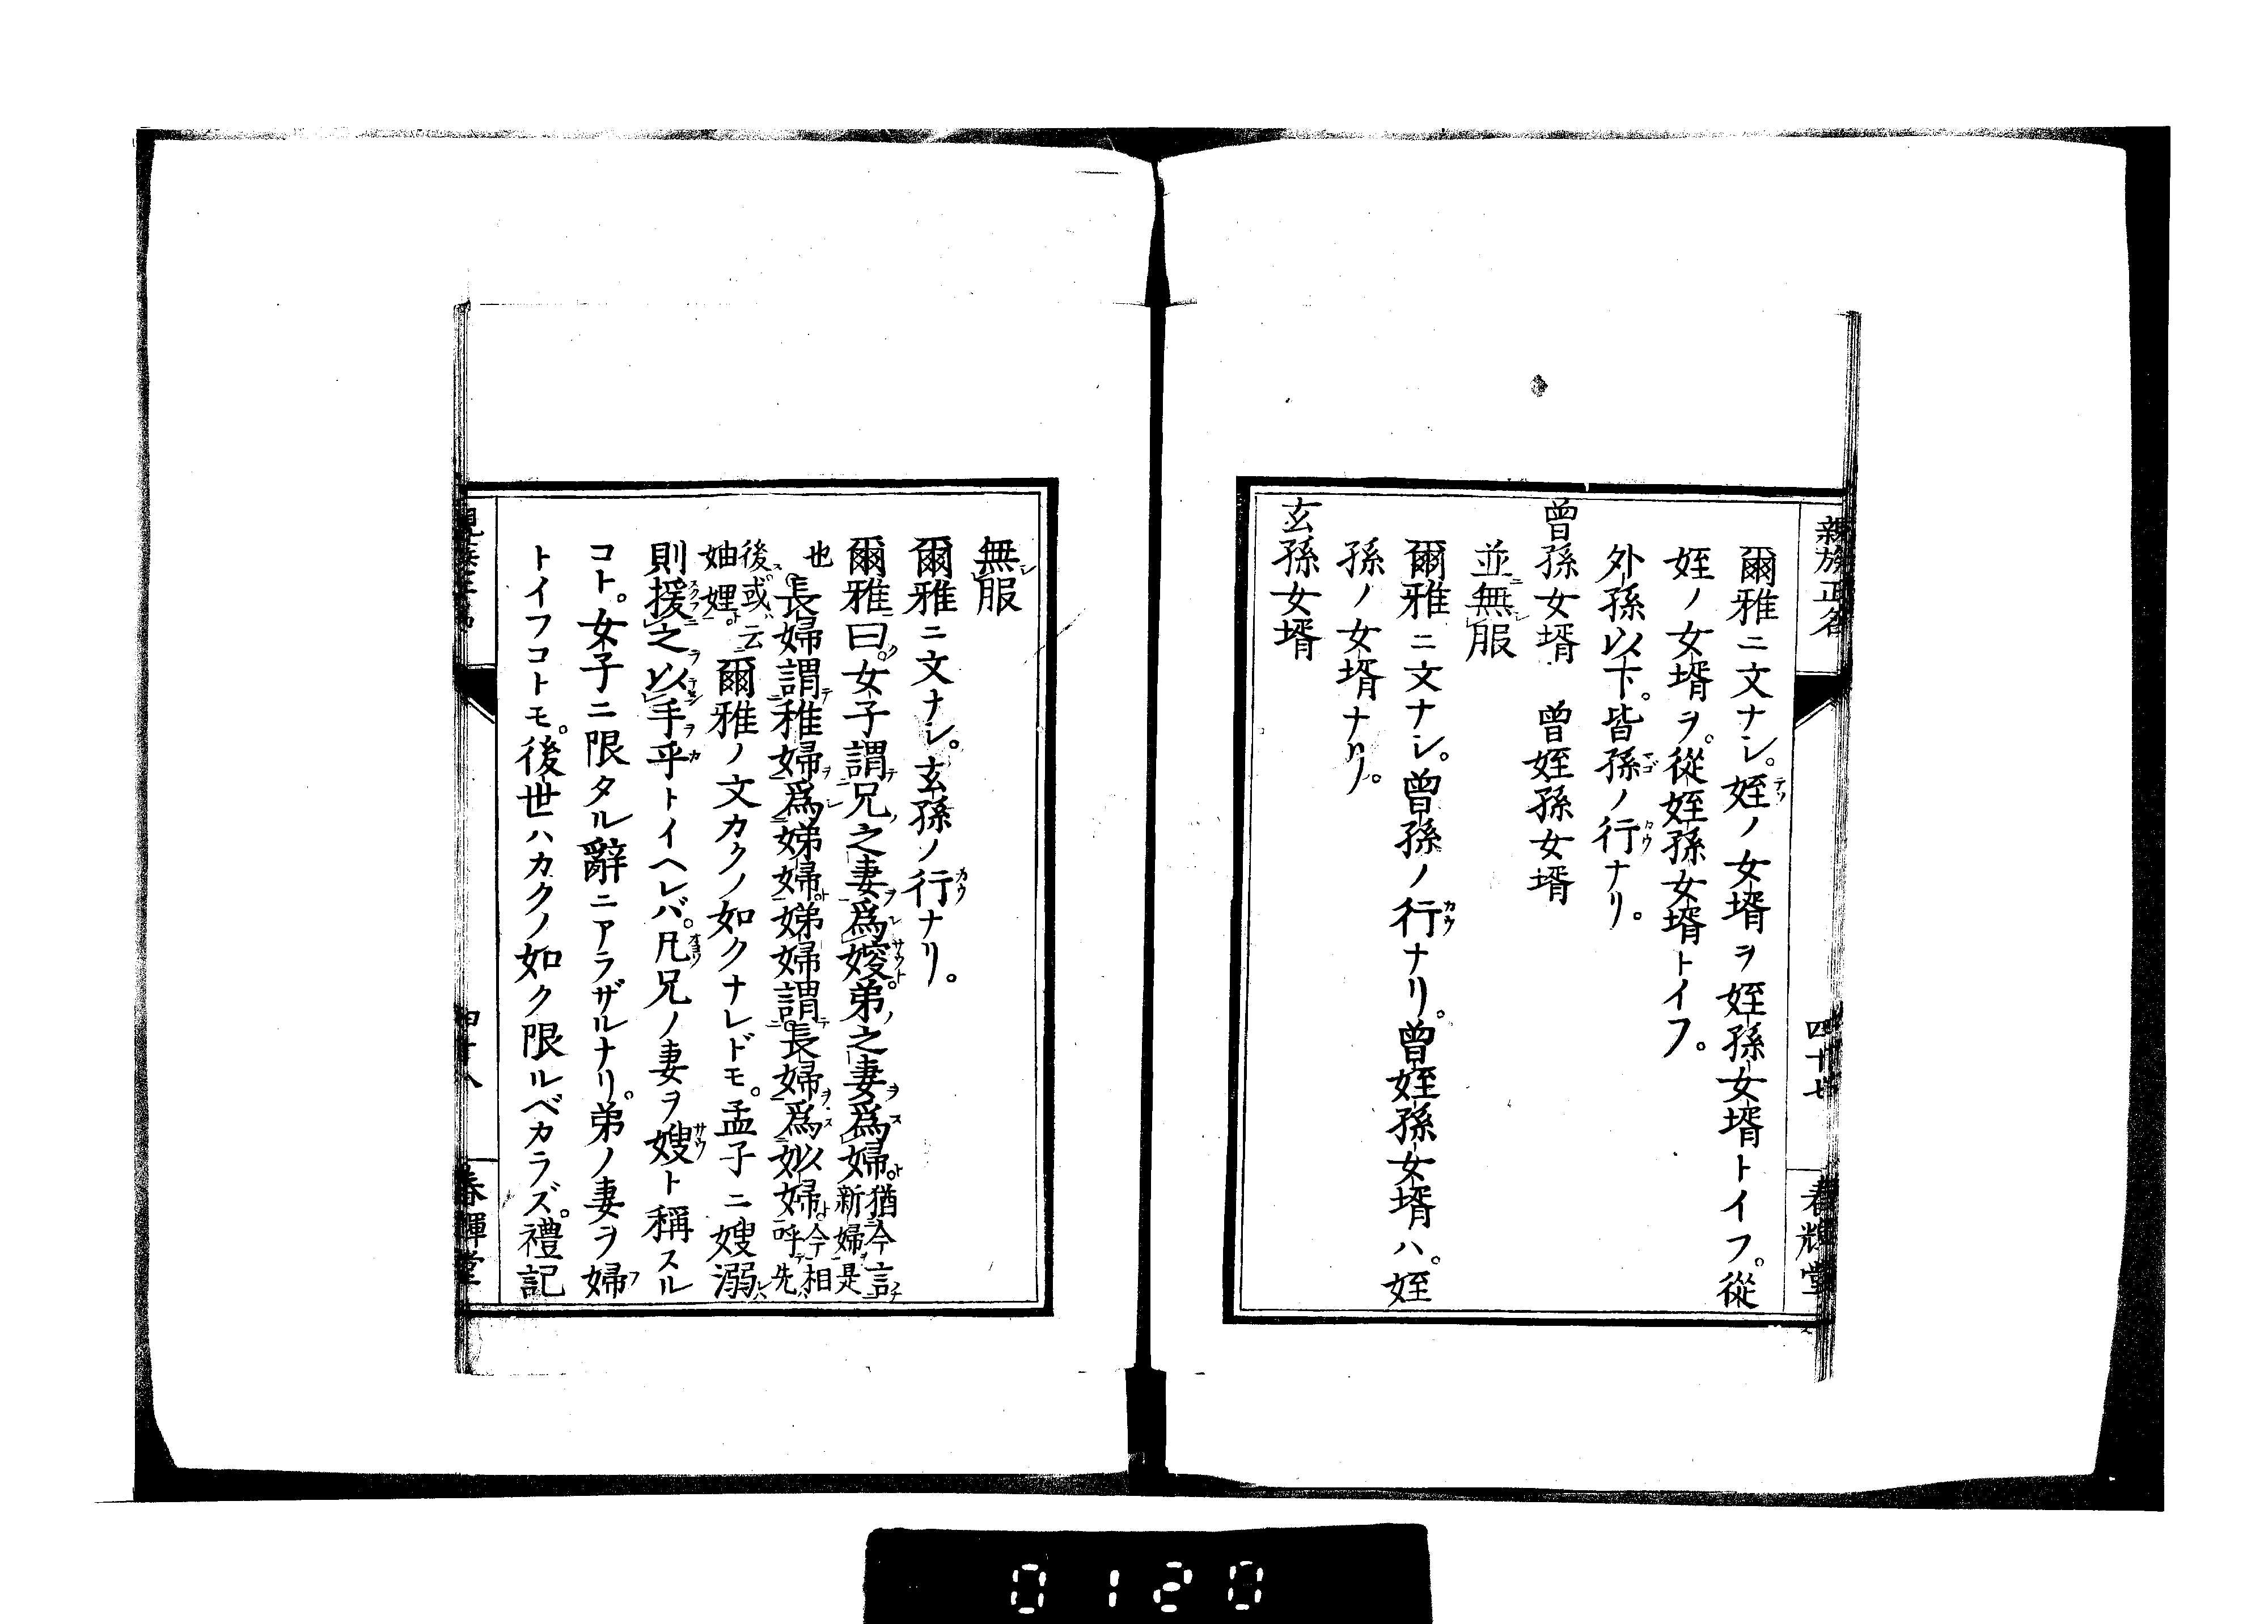 親族正名
四十七
春輝堂
爾雅ニ文ナシ。姪ノ女壻ヲ姪孫女壻トイフ。從
姪ノ女壻ヲ。從姪孫女壻トイフ。
外孫以下。皆孫ノ行ナリ。
曾孫女壻　曾姪孫女壻
並無服
爾雅ニ文ナシ。曾孫ノ行ナリ。曾姪孫女壻ハ。姪
孫ノ女壻ナリ。
玄孫女壻
無服
爾雅ニ文ナシ。玄孫ノ行ナリ。
爾雅曰。女子謂兄之妻爲㛮。弟之妻爲婦。猶今言新婦是
也 長婦謂稚婦爲娣婦。娣婦謂長婦爲姒婦。今相呼先
後。或云妯娌 爾雅ノ文カクノ如クナレドモ。孟子ニ嫂溺
則援之以手乎トイヘレバ。凡兄ノ妻ヲ嫂ト稱スル
コト。女子ニ限タル辭ニアラザルナリ。弟ノ妻ヲ婦
トイフコトモ。後世ハカクノ如ク限ルベカラズ。禮記
四十八
春輝堂
0120